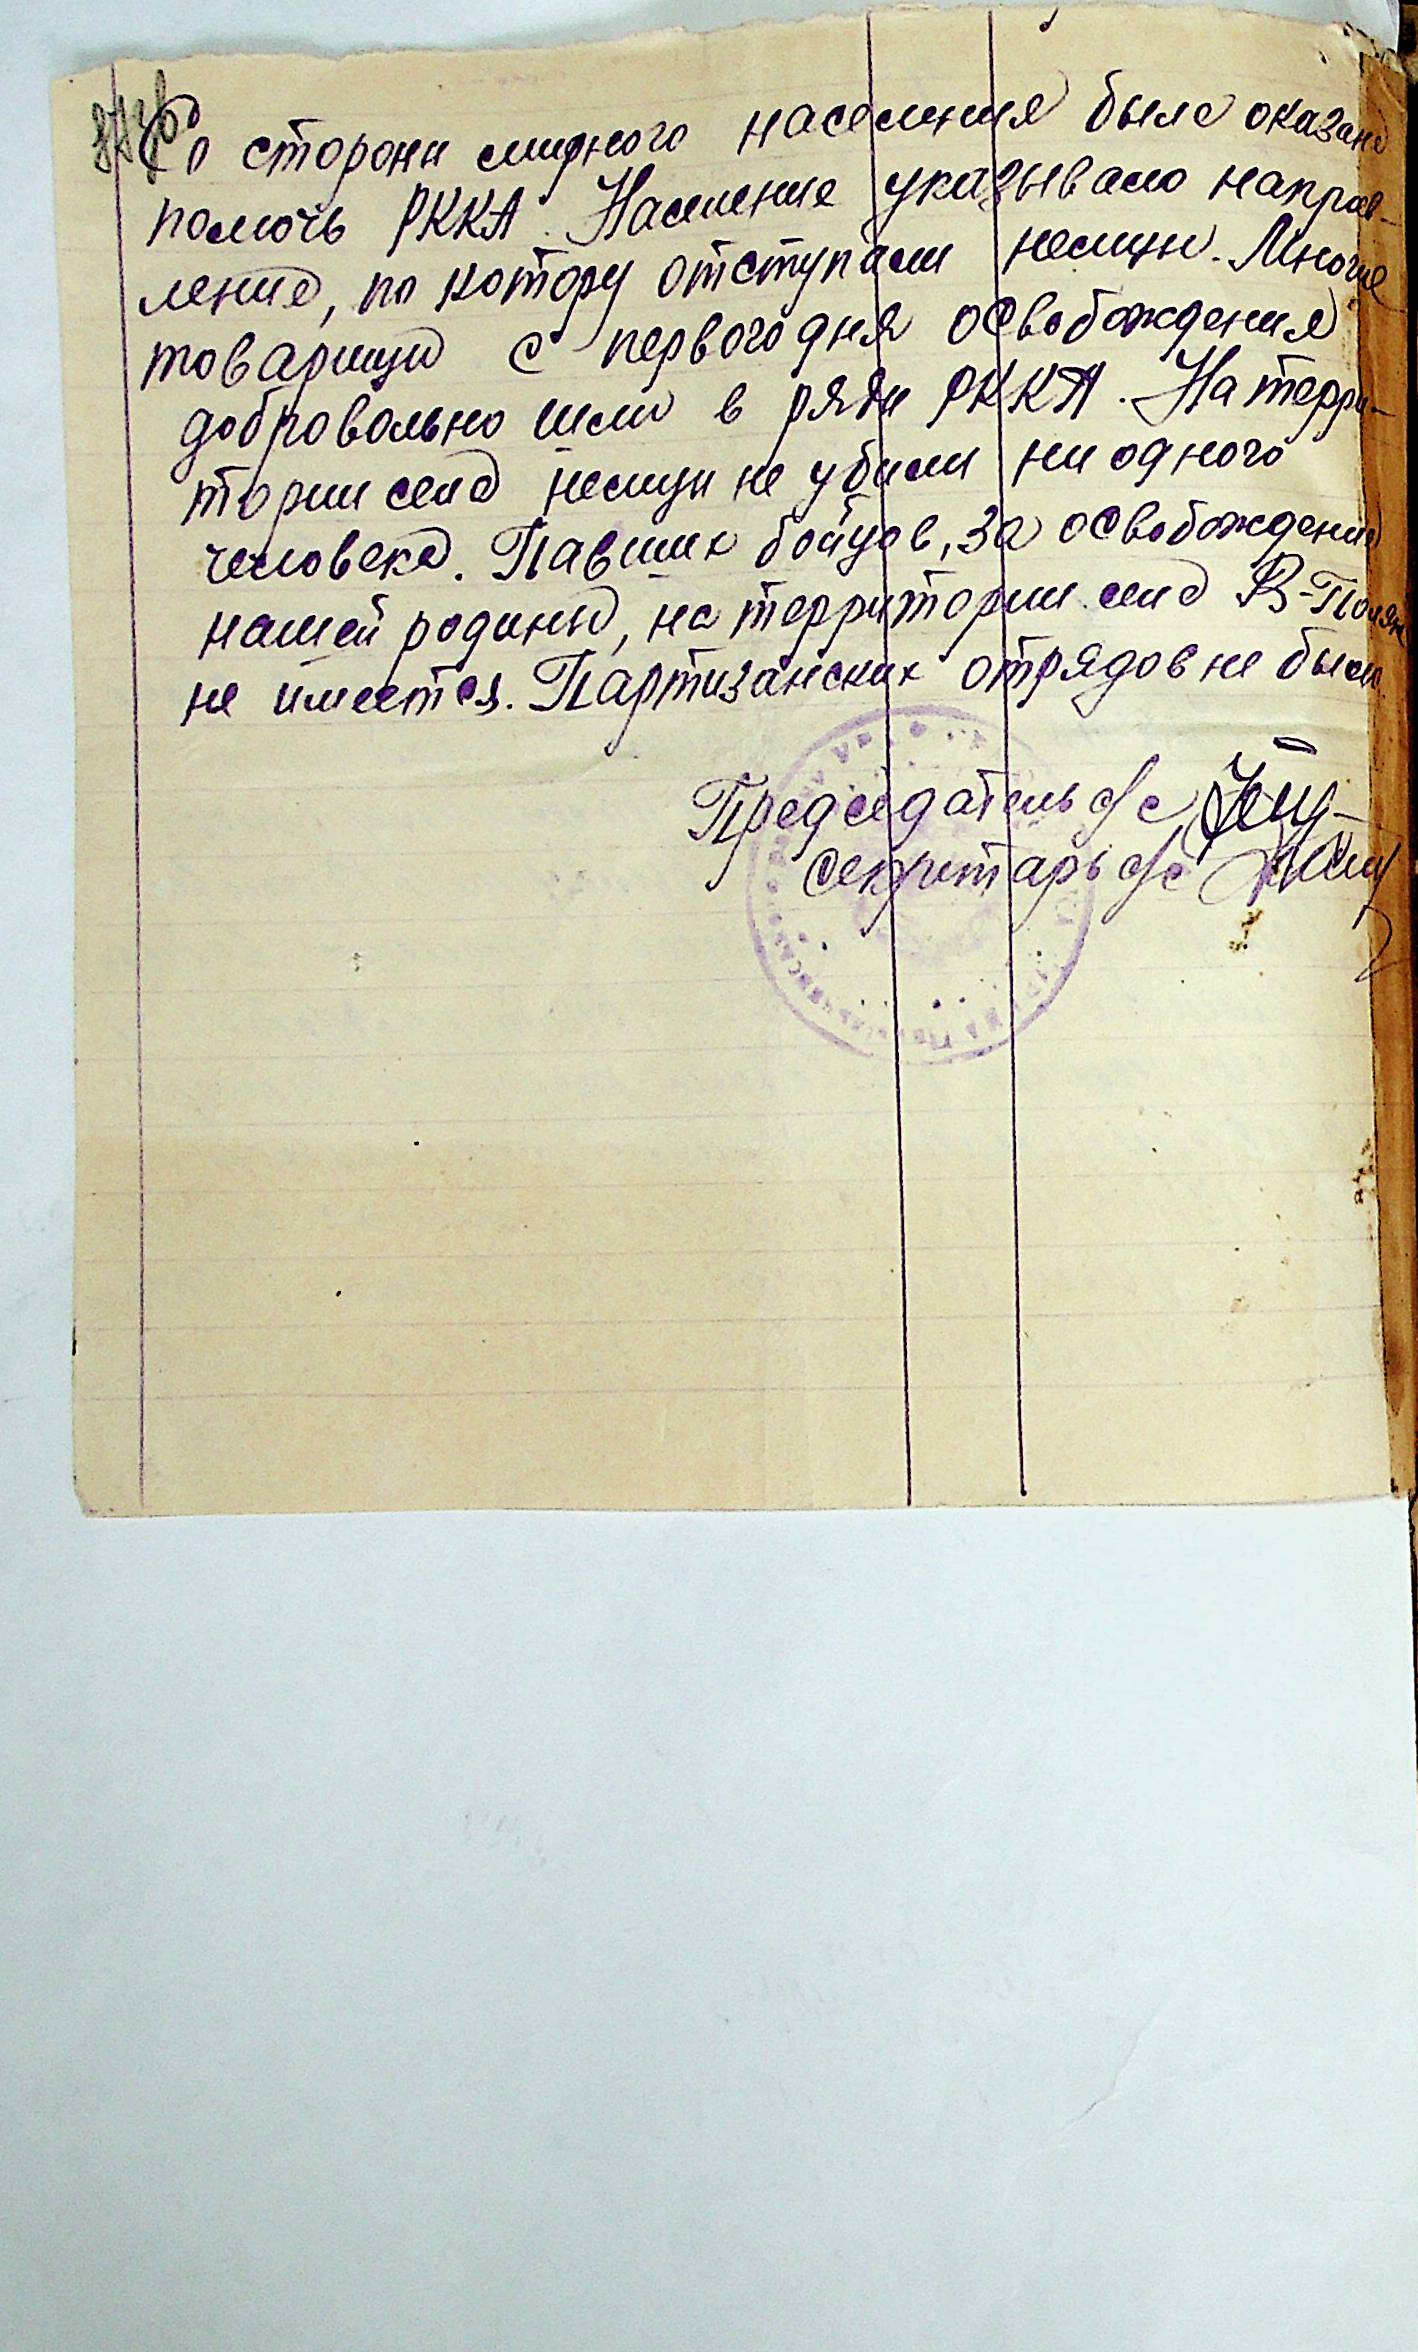 Со сторони мирного населения была оказана
помочь РККА. Население указывало направ-
ление, по котору отступали немци. Многие
товарищи с первого дня освобождения
добровольно шли в ряди РККА. На терри-
тории села немци не убили ни одного
человека. Павших бойцов, за освобождение
нашей родины, на территории села В-Поляна
не имеется. Партизанских отрядов не было.
Председатель с/с
Секретарь с/с